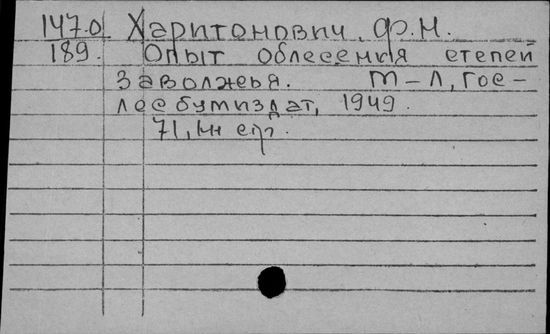 147.0 Харитонович, Ф.Н.
189. Опыт облесения степей
Заволжья. М-Л, Гос-
лесбумиздат, 1949.
71, [1] стр.